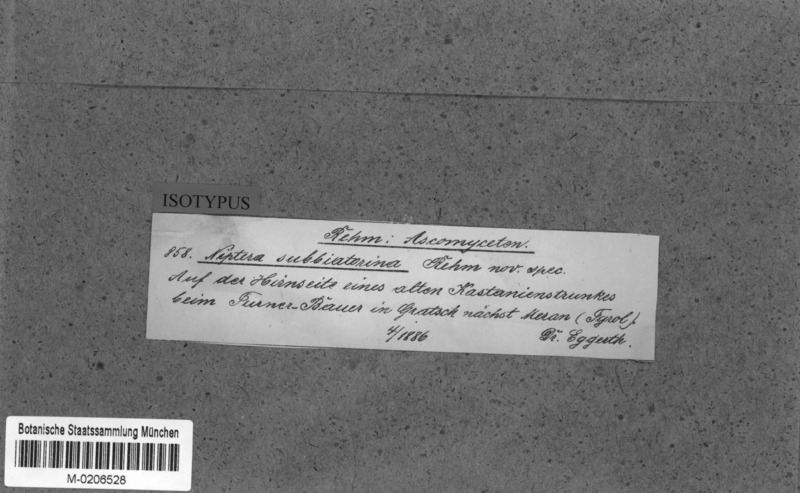 ISOTYPUS
Rehm: Ascomyceten.
858. Niptera subbiatorina Rehm nov. spec.
Auf der Hirnseite eines alten Kastanienstrunkes
beim Turner-Bauer in Gratsch nächst Meran (Tyrol).
4/1886 Dr. Eggerth.
Botanische Staatssammlung München
M-0206528